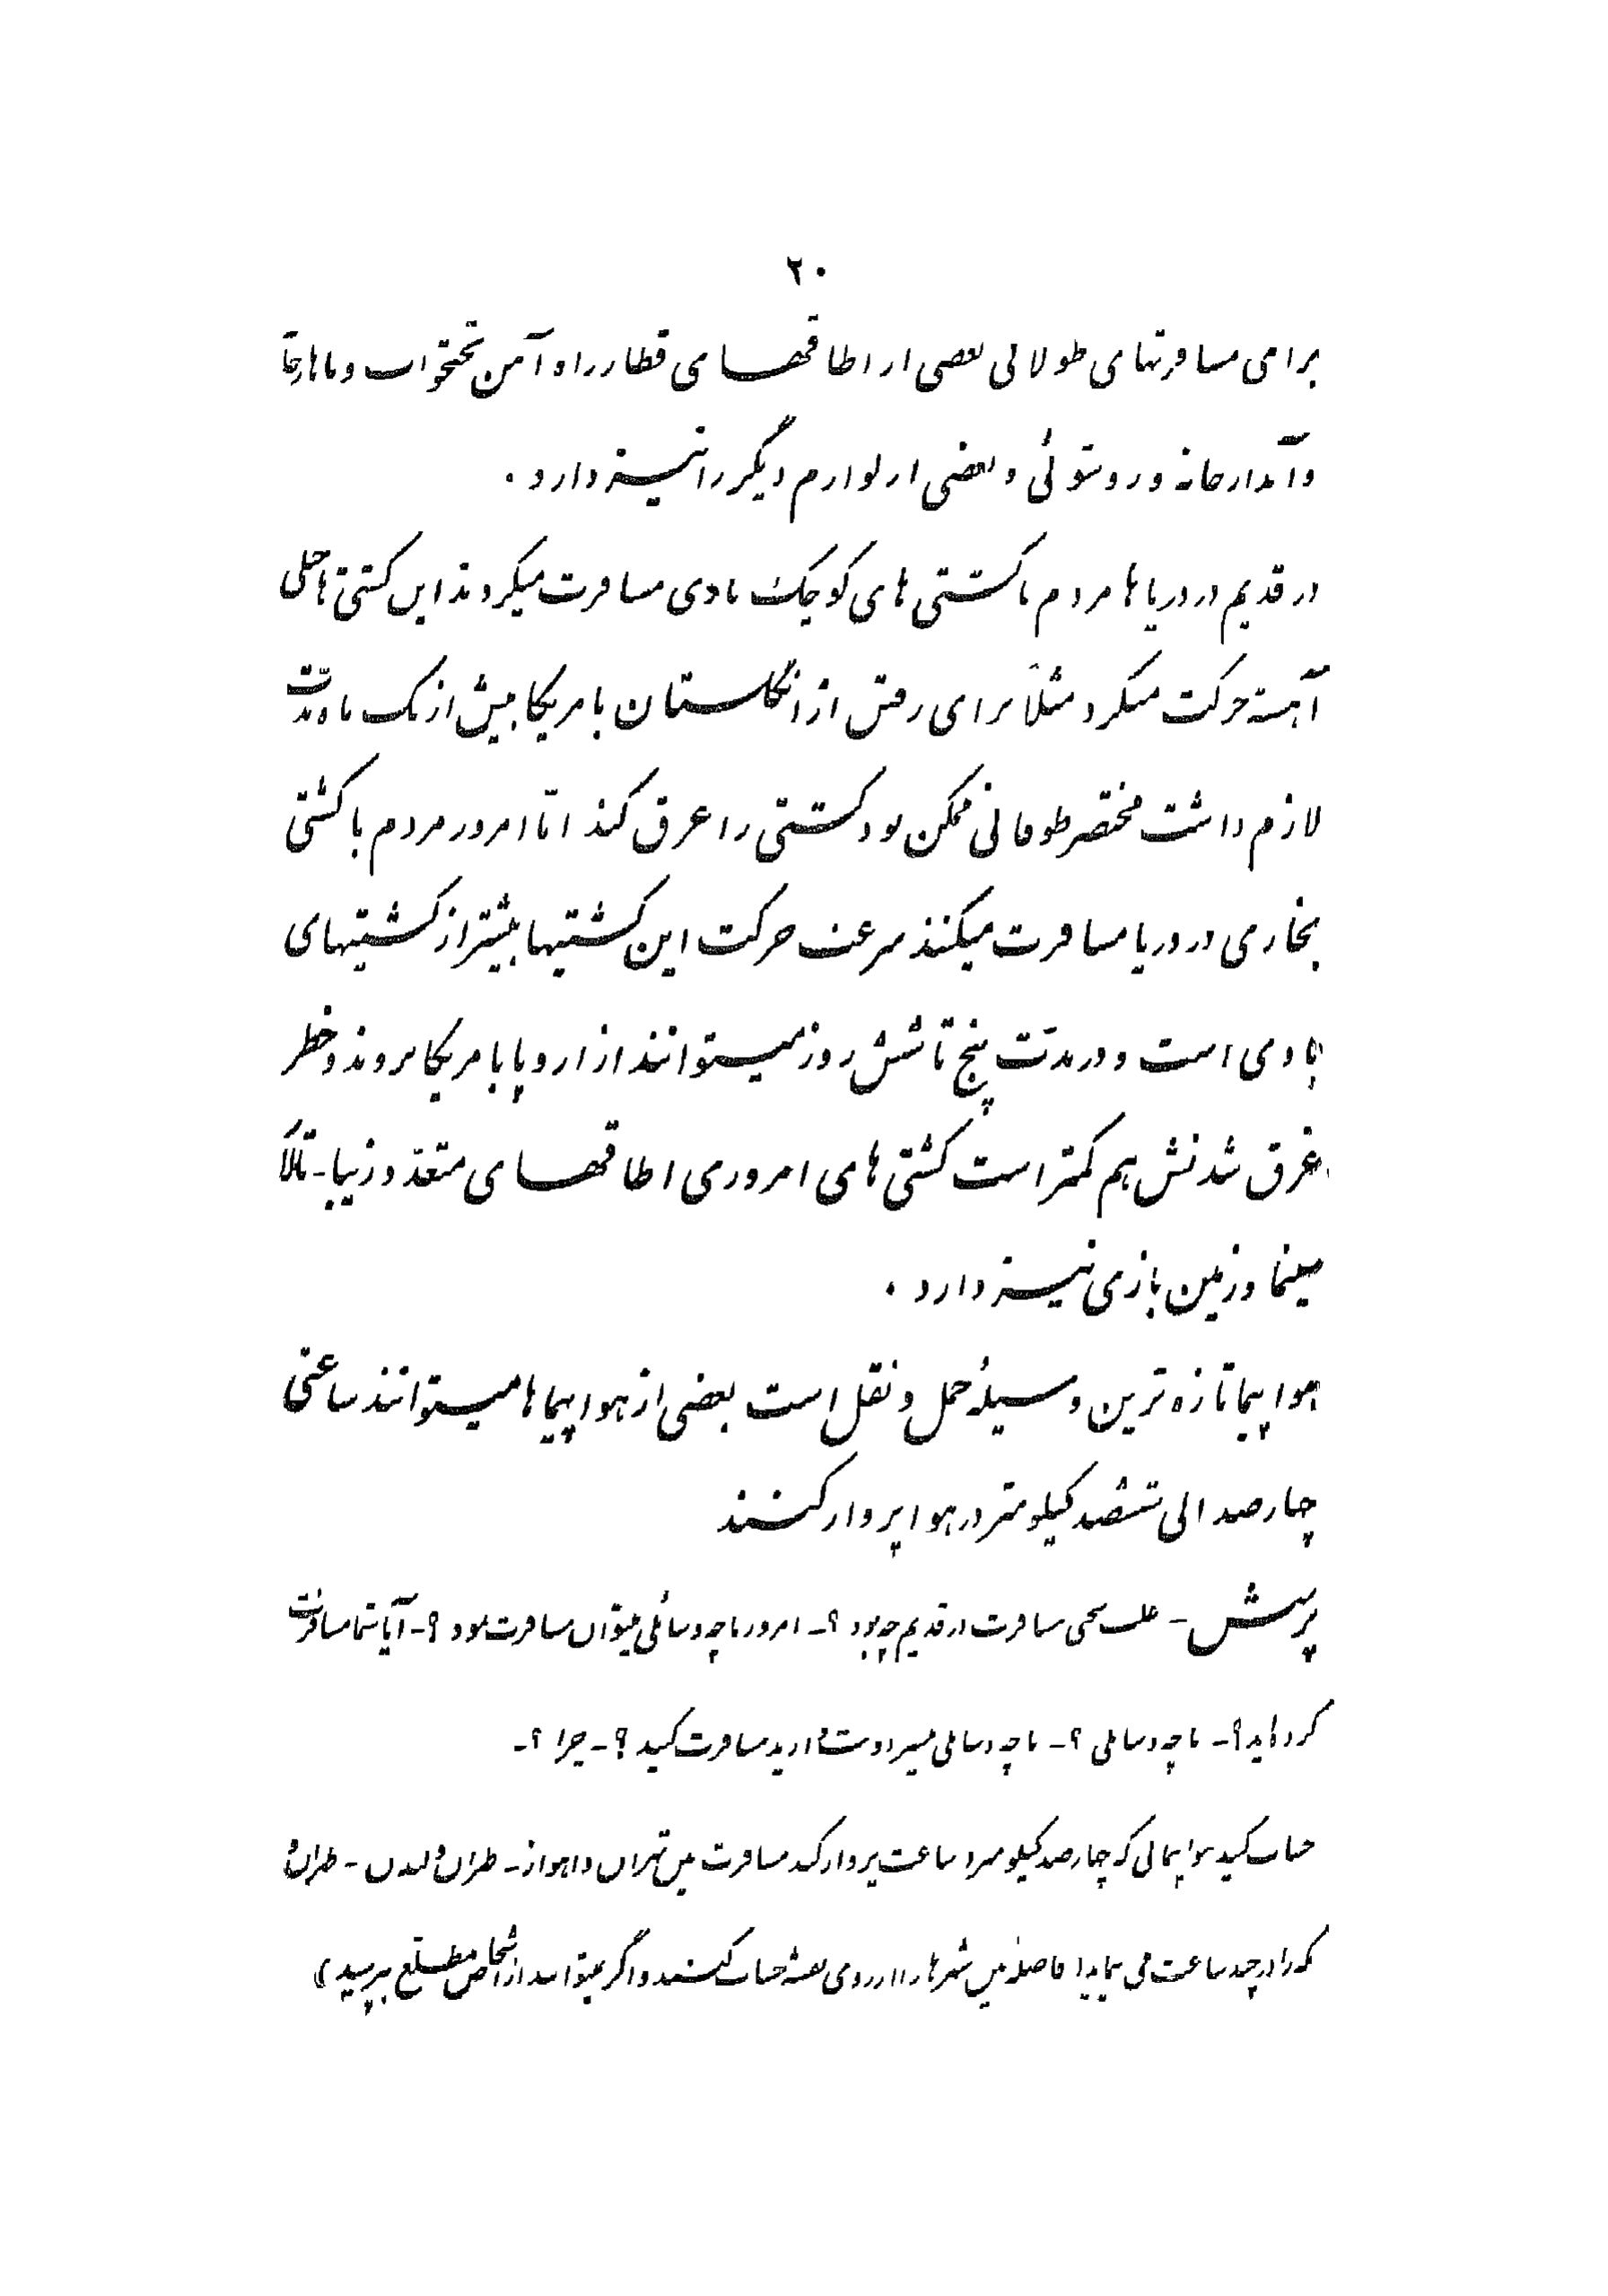 ۲۰
برای مسافرتهای طولانی بعضی از اطاقهای قطار راه آهن تختخواب و ناهارخانه
و آبدارخانه و روشوئی و بعضی از لوازم دیگر را نیز دارد .
در قدیم در دریاها مردم با کشتی های کوچک بادی مسافرت میکردند این کشتی ها خیلی
آهسته حرکت میکرد مثلاً برای رفتن از انگلستان بامریکا بیش از یک ماه مدت
لازم داشت مختصر طوفانی ممکن بود کشتی را غرق کند امّا امروز مردم با کشتی
بخاری در دریا مسافرت میکنند سرعت حرکت این کشتیها بیشتر از کشتیهای
بادی است و در مدّت پنج تا شش روز میتوانند از اروپا بامریکا بروند و خطر
غرق شدنش هم کمتر است کشتی های امروزی اطاقهای متعدّد و زیبا - تالار
سینما و زمین بازی نیز دارد .
هواپیما تازه ترین وسیلهٔ حمل و نقل است بعضی از هواپیماها میتوانند ساعتی
چهارصد الی ششصد کیلومتر در هوا پرواز کنند
پرسش - علت سختی مسافرت در قدیم چه بود ؟ - امروز با چه وسائلی میتوان مسافرت نمود ؟ - آیا شما مسافرت
کرده اید ؟ - با چه وسایلی ؟ - با چه وسایلی بیشتر دوست دارید مسافرت کنید ؟ - چرا ؟ -
حساب کنید هواپیمائی که چهارصد کیلومتر در ساعت پرواز کند مسافرت بین تهران و اهواز - طهران و لندن - طهران و
مکه را در چند ساعت می پیماید ( فاصلهٔ بین شهرها را از روی نقشه حساب کنید و اگر نمیتوانید از اشخاص مطلع بپرسید )